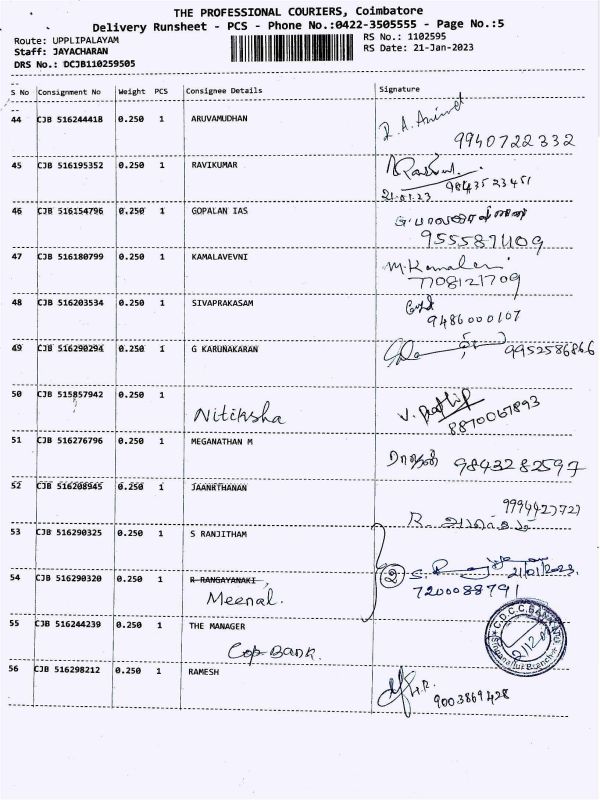 THE PROFESSIONAL COURIERS, Coimbatore
Delivery Runsheet - PCS - Phone No.:0422-3505555 - Page No.:5
Route: UPPLIPALAYAM RS No.: 1102595
Staff: JAYACHARAN RS Date: 21-Jan-2023
DRS No.: DCJB110259505
S No Consignment No Weight PCS Consignee Details Signature
44 CJB 516244418 0.250 1 ARUVAMUDHAN
9940722332
45 CJB 516195352 0.250 1 RAVIKUMAR
21.01.23 9843523451
46 CJB 516154796 0.250 1 GOPALAN IAS
9555871109
47 CJB 516180799 0.250 1 KAMALAVEVNI M.Kamalaveni
7708121709
48 CJB 516203534 0.250 1 SIVAPRAKASAM
9486000107
49 CJB 516290294 0.250 1 G KARUNAKARAN
9952586866
50 CJB 515857942 0.250 1
Nitiksha
8870067893
51 CJB 516276796 0.250 1 MEGANATHAN M
9843282597
52 CJB 516208945 0.250 1 JAANKTHANAN
9994427727
53 CJB 516290325 0.250 1 S RANJITHAM
54 CJB 516290320 0.250 1 R RANGAYANAKI 2 21/01/2023.
Meenal. 7200088791
55 CJB 516244239 0.250 1 THE MANAGER
Cop BANK.
C.D.C.C.BANK
Branch
56 CJB 516298212 0.250 1 RAMESH
9003869428